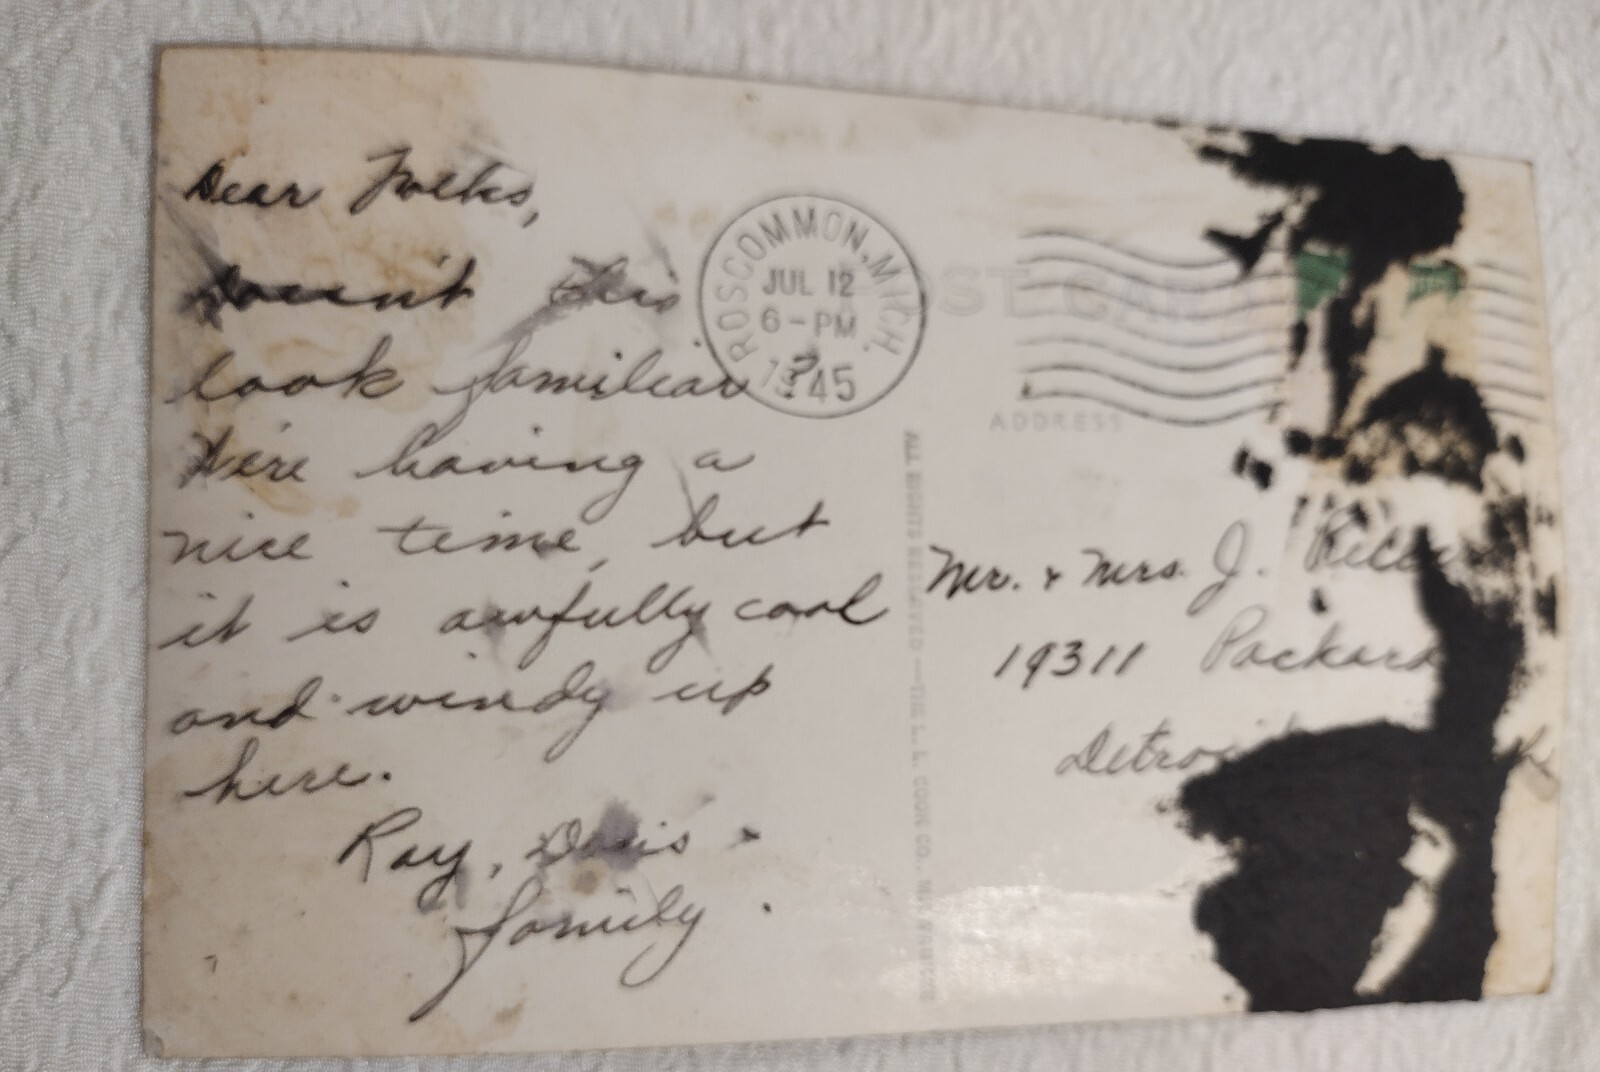 Dear Folks,
Doesn't this
look familiar?
We're having a
nice time, but
it is awfully cool
and windy up
here.
Ray, Doris &
family.
ROSCOMMON, MICH.
JUL 12
6-PM
1945
POST CARD
ADDRESS
ALL RIGHTS RESERVED — THE L. L. COOK CO.
Mr. & Mrs. J.
19311 Packard
Detroit